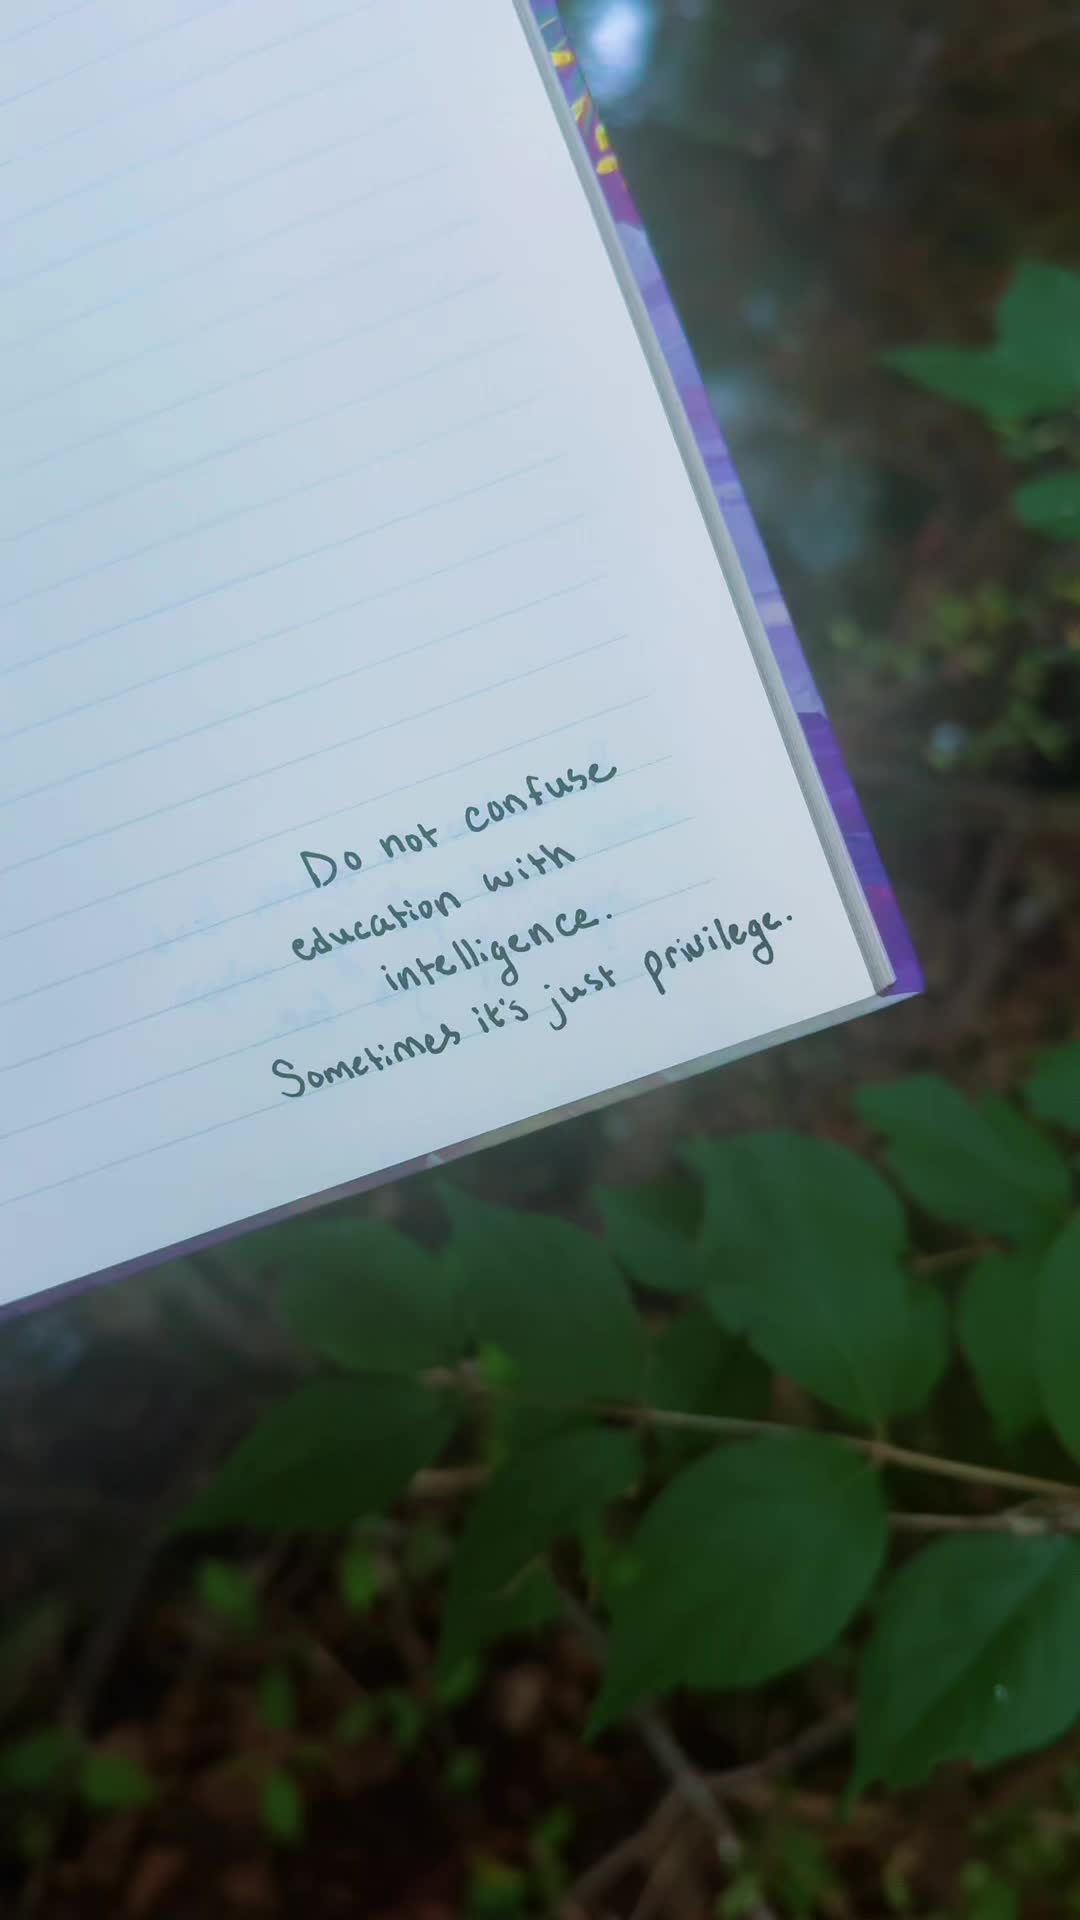 Do not confuse
education with
intelligence.
Sometimes it's just privilege.